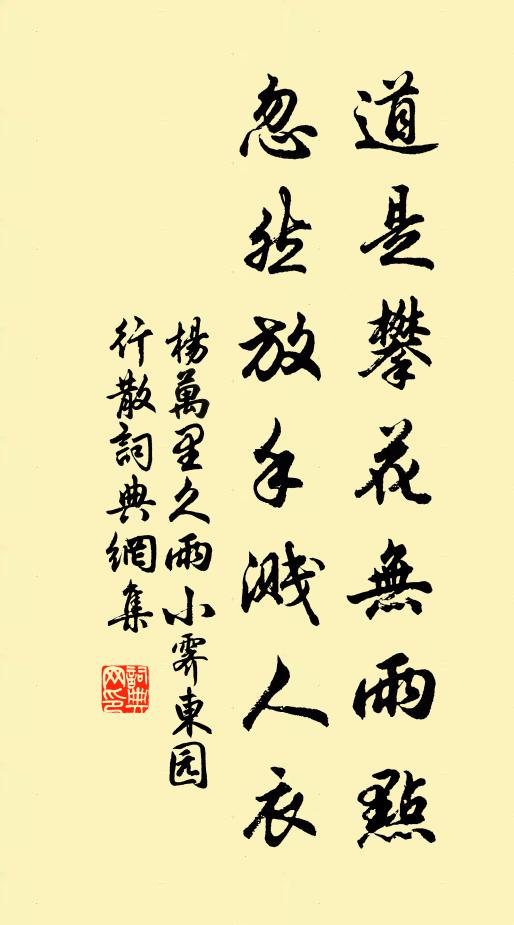 道是攀花無雨點
忽然放手濺人衣
楊萬里久雨小霽東园
行散詞典網集
詞典网印